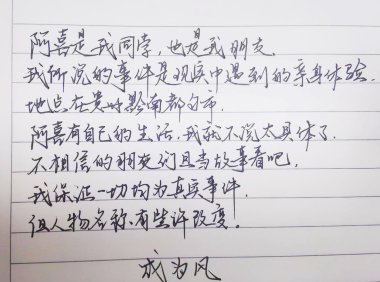 阿喜是我同学，也是我朋友
我所说的事件是现实中遇到的亲身体验.
地点在贵州黔南都匀市.
阿喜有自己的生活，我就不说太具体了.
不相信的朋友们且当故事看吧.
我保证一切均为真实事件.
但人物名称有些许改变.
成为风